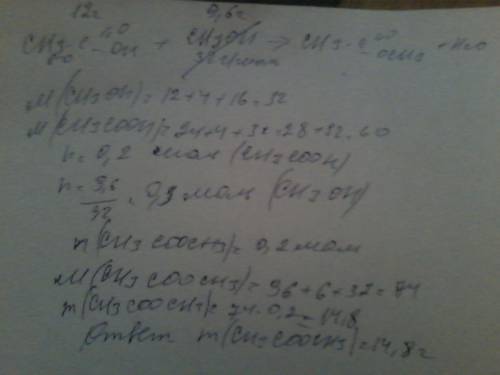 12г 9,6г
CH3-C=O-OH + CH3OH → CH3-C=O-OCH3 + H2O
60 32г/моль
M(CH3OH)=12+4+16=32
M(CH3COOH)=24+4+32=28+32=60
n=0,2 мол (CH3COOH)
n=9,6/32=0,3 мол (CH3OH)
n(CH3COOCH3)=0,2 мол
M(CH3COOCH3)=36+6+32=74
m(CH3COOCH3)=74·0,2=14,8
Ответ m(CH3COOCH3)=14,8г